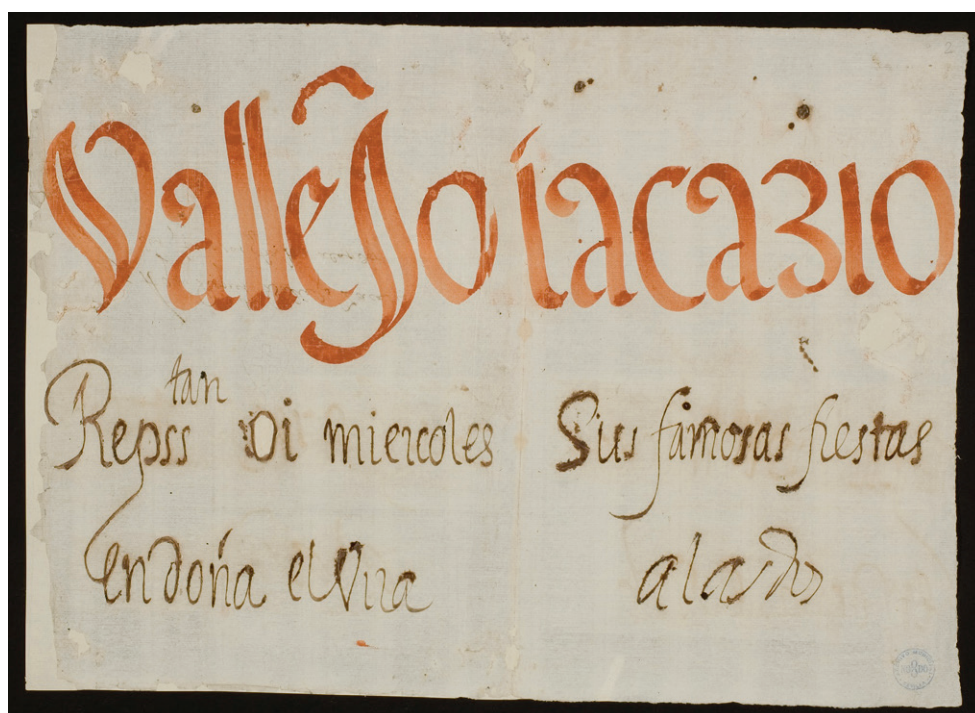 Vallejo iacazio
Repss^tan oi miercoles Sus famosas fiestas
en doña elvira a las dos